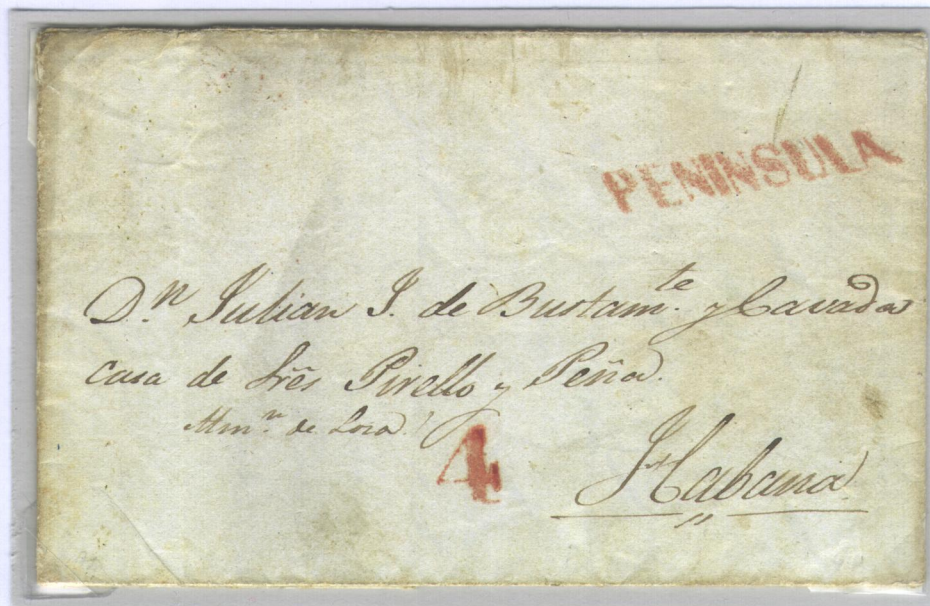 PENINSULA
Dn Julian J. de Bustamte y Cavada
casa de Sres Pirello y Peña.
Almn de Loza
4
Habana